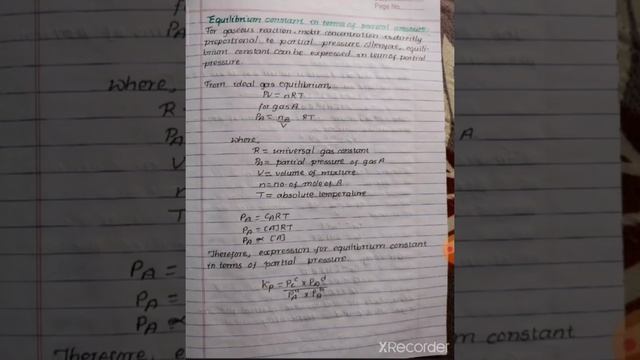 Page No.
Equilibrium constant in terms of partial pressure
For gaseous reaction, molar concentration is directly
proportional to partial pressure. Therefore, equili-
brium constant can be expressed in term of partial
pressure
From ideal gas equilibrium,
PV = nRT
for gas A
PA = nA/V RT
where,
R = universal gas constant
PA = partial pressure of gas A
V = volume of mixture
n = no. of mole of A
T = absolute temperature
PA = CART
PA = [A]RT
PA ∝ [A]
Therefore, expression for equilibrium constant
in terms of partial pressure.
XRecorder